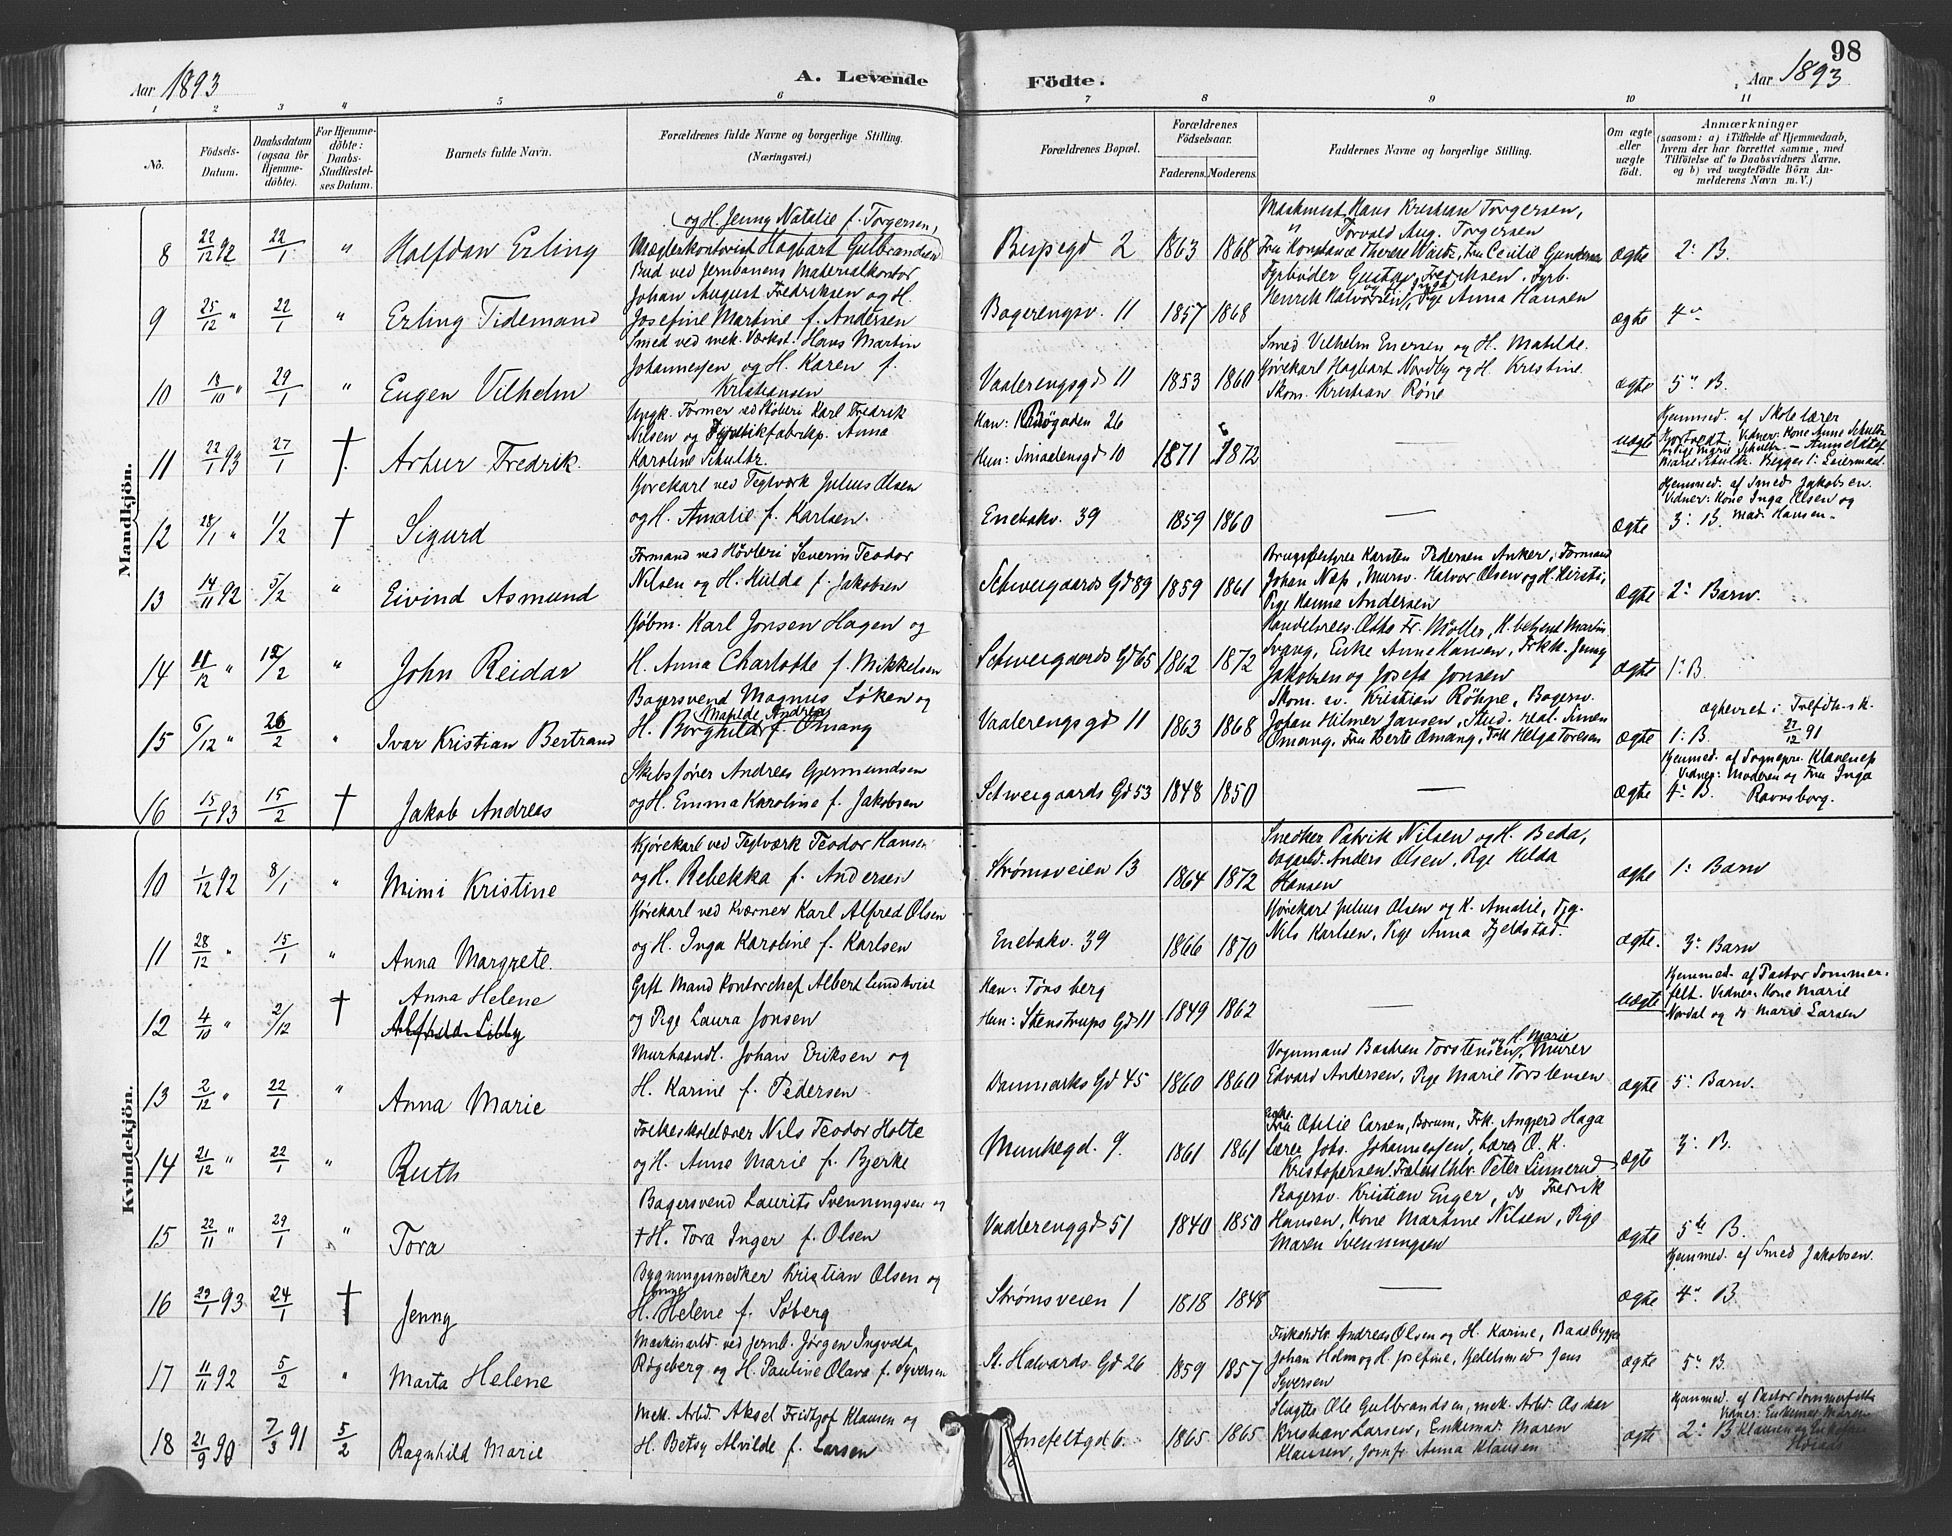 98
Aar 1893
A. Levende
Födte.
Aar 1893
1 2 3 4 5 6 7 8 9 10 11
No.
Födsels-
Datum.
Daabsdatum
(ogsaa for
Hjemme-
döbte).
For Hjemme-
döbte:
Daabs-
Stadfæstel-
ses Datum.
Barnets fulde Navn.
Forældrenes fulde Navne og borgerlige Stilling.
(Næringsvei.)
Forældrenes Bopæl.
Forældrenes
Födselsaar.
Faderens. Moderens.
Faddernes Navne og borgerlige Stilling.
Om ægte
eller
uægte
födt.
Anmærkninger
(saasom: a) i Tilfælde af Hjemmedaab,
hvem der har forrettet samme, med
Tilföielse af to Daabsvidners Navne.
og b) ved uægtefödte Börn An-
melderens Navn m. V.)
Mandkjön.
8 22/12 92 22/1 " Halfdan Erling
og H. Jenny Natalie f. Torgersen,
Mæglerkontorist Hagbart Gulbrandsen
Bispegd 2 1863 1868
Maskinist Hans Kristian Torgersen,
" Torvald Aug. Torgersen
Fru Konstance Therese Waitz, Fru Cecilie Gundersen
ægte 2: B.
9 25/12 " 22/1 " Erling Tidemand
Bud ved Jernbanens Materialkontor
Johan August Fredriksen og H.
Josefine Martine f. Andersen
Bagerengsv. 11 1857 1868
Fyrbøder Gustav Fredriksen, Fyrb.
Henrik Halvorsen, Pige Anna Hansen
ægte 4"
10 18/10 " 29/1 " Eugen Vilhelm
Smed ved mek. Værkst. Hans Martin
Johannesen og H. Karen f.
Kristiansen
Vaalerengsgd 11 1853 1860
Smed Vilhelm Enersen og H. Matilde.
Kjørekarl Hagbart Nordby og H. Kristine
Skom. Kristian Røne
ægte 5" B.
11 22/1 93 27/1 † Artur Fredrik.
Ungk. Former ved Støberi Karl Fredrik
Nilsen og Fyrstikfabrikp. Anna
Karoline Schultz.
Han: 26
Hun: Smaalensgd 10 1871 1872
—
uægte
Hjemmed. af Skolelærer
Vidner: Kone Anne Schultz
og Pige Marie Schultz – Anmeldt af
Marie Schultz. Begges 1: Leiermaal.
12 28/1 " 1/2 † Sigurd
Kjørekarl ved Teglværk Julius Olsen
og H. Amalie f. Karlsen.
Enebakv. 39 1859 1860
—
ægte
Hjemmed. af Smed Jakobsen.
Vidner: Kone Inga Olsen og
3: B. Mad. Hansen.
13 14/11 92 5/2 " Eivind Asmund
Formand ved Høvleri Severin Teodor
Nilsen og H. Hulda f. Jakobsen
Schweigaards Gd 89 1859 1861
Brugsbestyrer Karsten Pedersen Anker, Formand
Johan Næp, Mursv. Halvor Olsen og H. Kirsti,
Pige Hanna Andersen
ægte 2: Barn.
14 11/12 " 12/2 " John Reidar
Kjøbm. Karl Jonsen Hagen og
H. Anna Charlotte f. Mikkelsen
Schweigaards Gd 65 1862 1872
Handelsreis. Otto Fr. Møller, H. betjent Martin
Svang, Enke Anne Hansen, Frkk. Jenny
Jakobsen og Josefa Jonsen
ægte 1: B
15 6/12 " 26/2 " Ivar Kristian Bertrand
Bagersvend Magnus Løken og
Matilde Andrea
H. Borghild f. Omang
Vaalerengsgd 11 1863 1868
Skom. sv. Kristian Røhne, Bagersv.
Johan Hilmer Jansen, Stud. real. Simen
Omang, Fru Berte Omang, Frk Helga Toresen
ægte 1: B.
ægteviet i Trefdh.sk.
27/12 91
16 15/1 93 15/2 † Jakob Andreas
Skibsfører Andreas Gjermundsen
og H. Emma Karoline f. Jakobsen
Schweigaards Gd 53 1848 1850
—
ægte
Hjemmed. af Sognepr. Klavenes
Vidner: Moderen og Fru Inga
4: B. Ravnsborg.
Kvindekjön.
10 1/12 92 8/1 " Mimi Kristine
Kjørekarl ved Teglværk Teodor Hansen
og H. Rebekka f. Andersen
Strømsveien 13 1864 1872
Snedker Patrik Nilsen og H. Beda,
Dagarb. Anders Olsen, Pige Hilda
Hansen
ægte 1: Barn
11 28/12 " 15/1 " Anna Margrete.
Kjørekarl ved Kværner Karl Alfred Olsen
og H. Inga Karoline f. Karlsen
Enebakv. 39 1866 1870
Kjørekarl Julius Olsen og H. Amalie, Tjg.
Nils Karlsen, Pige Anna Fjeldstad.
ægte. 3: Barn
12 4/10 " 2/12 † Anna Helene
Alfhild Libby
Gift Mand Kontorchef Albert Lundkvist
og Pige Laura Jonsen
Han: Tønsberg
Hun: Stenstrups Gd 11 1849 1862
—
uægte
Hjemmed. af Pastor Sommer-
felt. Vidner: Kone Marie
Nordal og do Marie Larsen
13 2/12 " 22/1 " Anna Marie
Murhaandl. Johan Eriksen og
H. Karine f. Pedersen
Danmarks Gd 45 1860 1860
og H. Marie
Vognmand Bastian Torstensen, Murer
Edvard Andersen, Pige Marie Torstensen
ægte 5: Barn.
14 21/12 " 22/1 " Ruth
Folkeskolelærer Nils Teodor Holte
og H. Anne Marie f. Bjerke
Munkegd. 9. 1861 1861
Fru Otilie Larsen, Borum, Frk. Angjerd Haga
Lærer Johs. Johannessen, Lærer O. K.
Kristofersen, Peter Linnerud
ægte 3: B.
15 22/11 " 29/1 " Tora
Bagersvend Laurits Svenningsen og
† H. Tora Inger f. Olsen
Vaalerenggd 51 1840 1850
Bagersv. Kristian Enger, do Fredrik
Hansen, Kone Martine Nilsen, Pige
Maren Svenningsen
ægte 5te B.
16 23/1 93 24/1 † Jenny
Bygningssnedker Kristian Olsen og
H. Helene f. Søberg
Strømsveien 1 1818 1848
—
ægte
Hjemmed. af Smed Jakobsen.
4" B.
17 11/11 92 5/2 " Marta Helene
Maskinarbd. ved Jernb. Jørgen Ingvald
Røgeberg og H. Pauline Olava f. Syversen
St. Halvards Gd 26 1859 1857
Fiskehdlr. Andreas Olsen og H. Karine, Baadbygger
Johan Holm og H. Josefine, Kjedelsmed Jens
Syversen
ægte 5" B.
18 21/9 90 7/3 91 5/2 Ragnhild Marie
Mek. Arbd. Aksel Fridtjof Klausen og
H. Betsy Alvilde f. Larsen
Tnefeltgd 6. 1865 1865
Slagter Ole Gulbrandsen, mek. Arbd. Oskar
Kristian Larsen, Enkemad. Maren
Klausen, Jomfr Anna Klausen
ægte
Hjemmed. af Pastor Sommerfelt
Vidner: Enkemad. Maren
2: B Klausen og